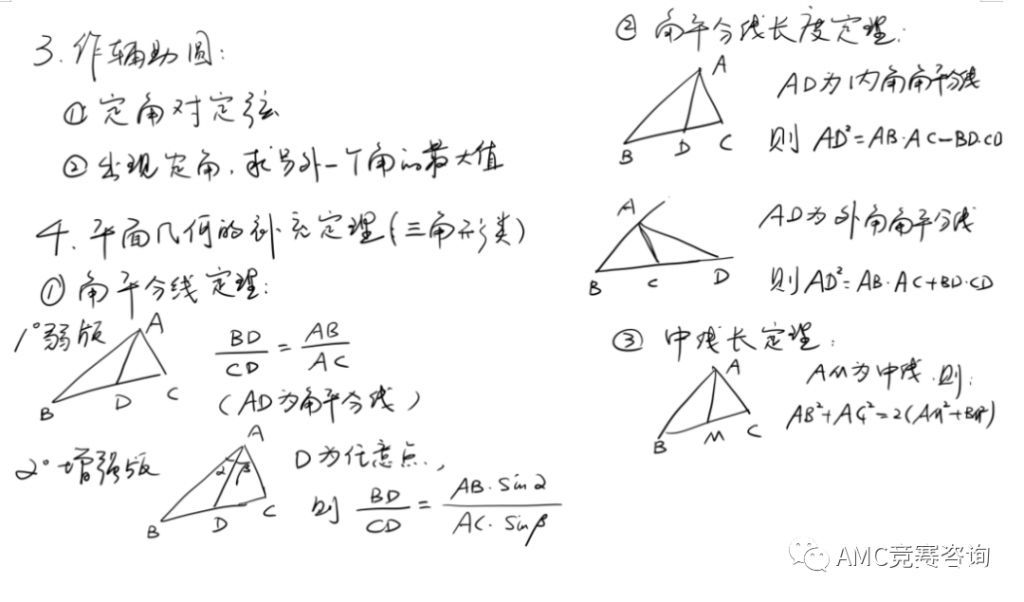 3. 作辅助圆:
① 定角对定弦
② 出现定角, 求另外一个角的最大值
4. 平面几何的补充定理(三角形类)
① 角平分线定理:
1° 弱版
A
B
D
C
BD/CD = AB/AC
(AD为角平分线)
2° 增强版
A
α β
B
D
C
D为任意点,
则 BD/CD = AB·Sinα/AC·Sinβ
② 角平分线长度定理:
A
B
D
C
AD为内角角平分线
则 AD²=AB·AC-BD·CD
A
B
C
D
AD为外角角平分线
则AD²=AB·AC+BD·CD
③ 中线长定理:
A
B
M
C
AM为中线,则:
AB²+AC²=2(AM²+BM²)
AMC竞赛咨询